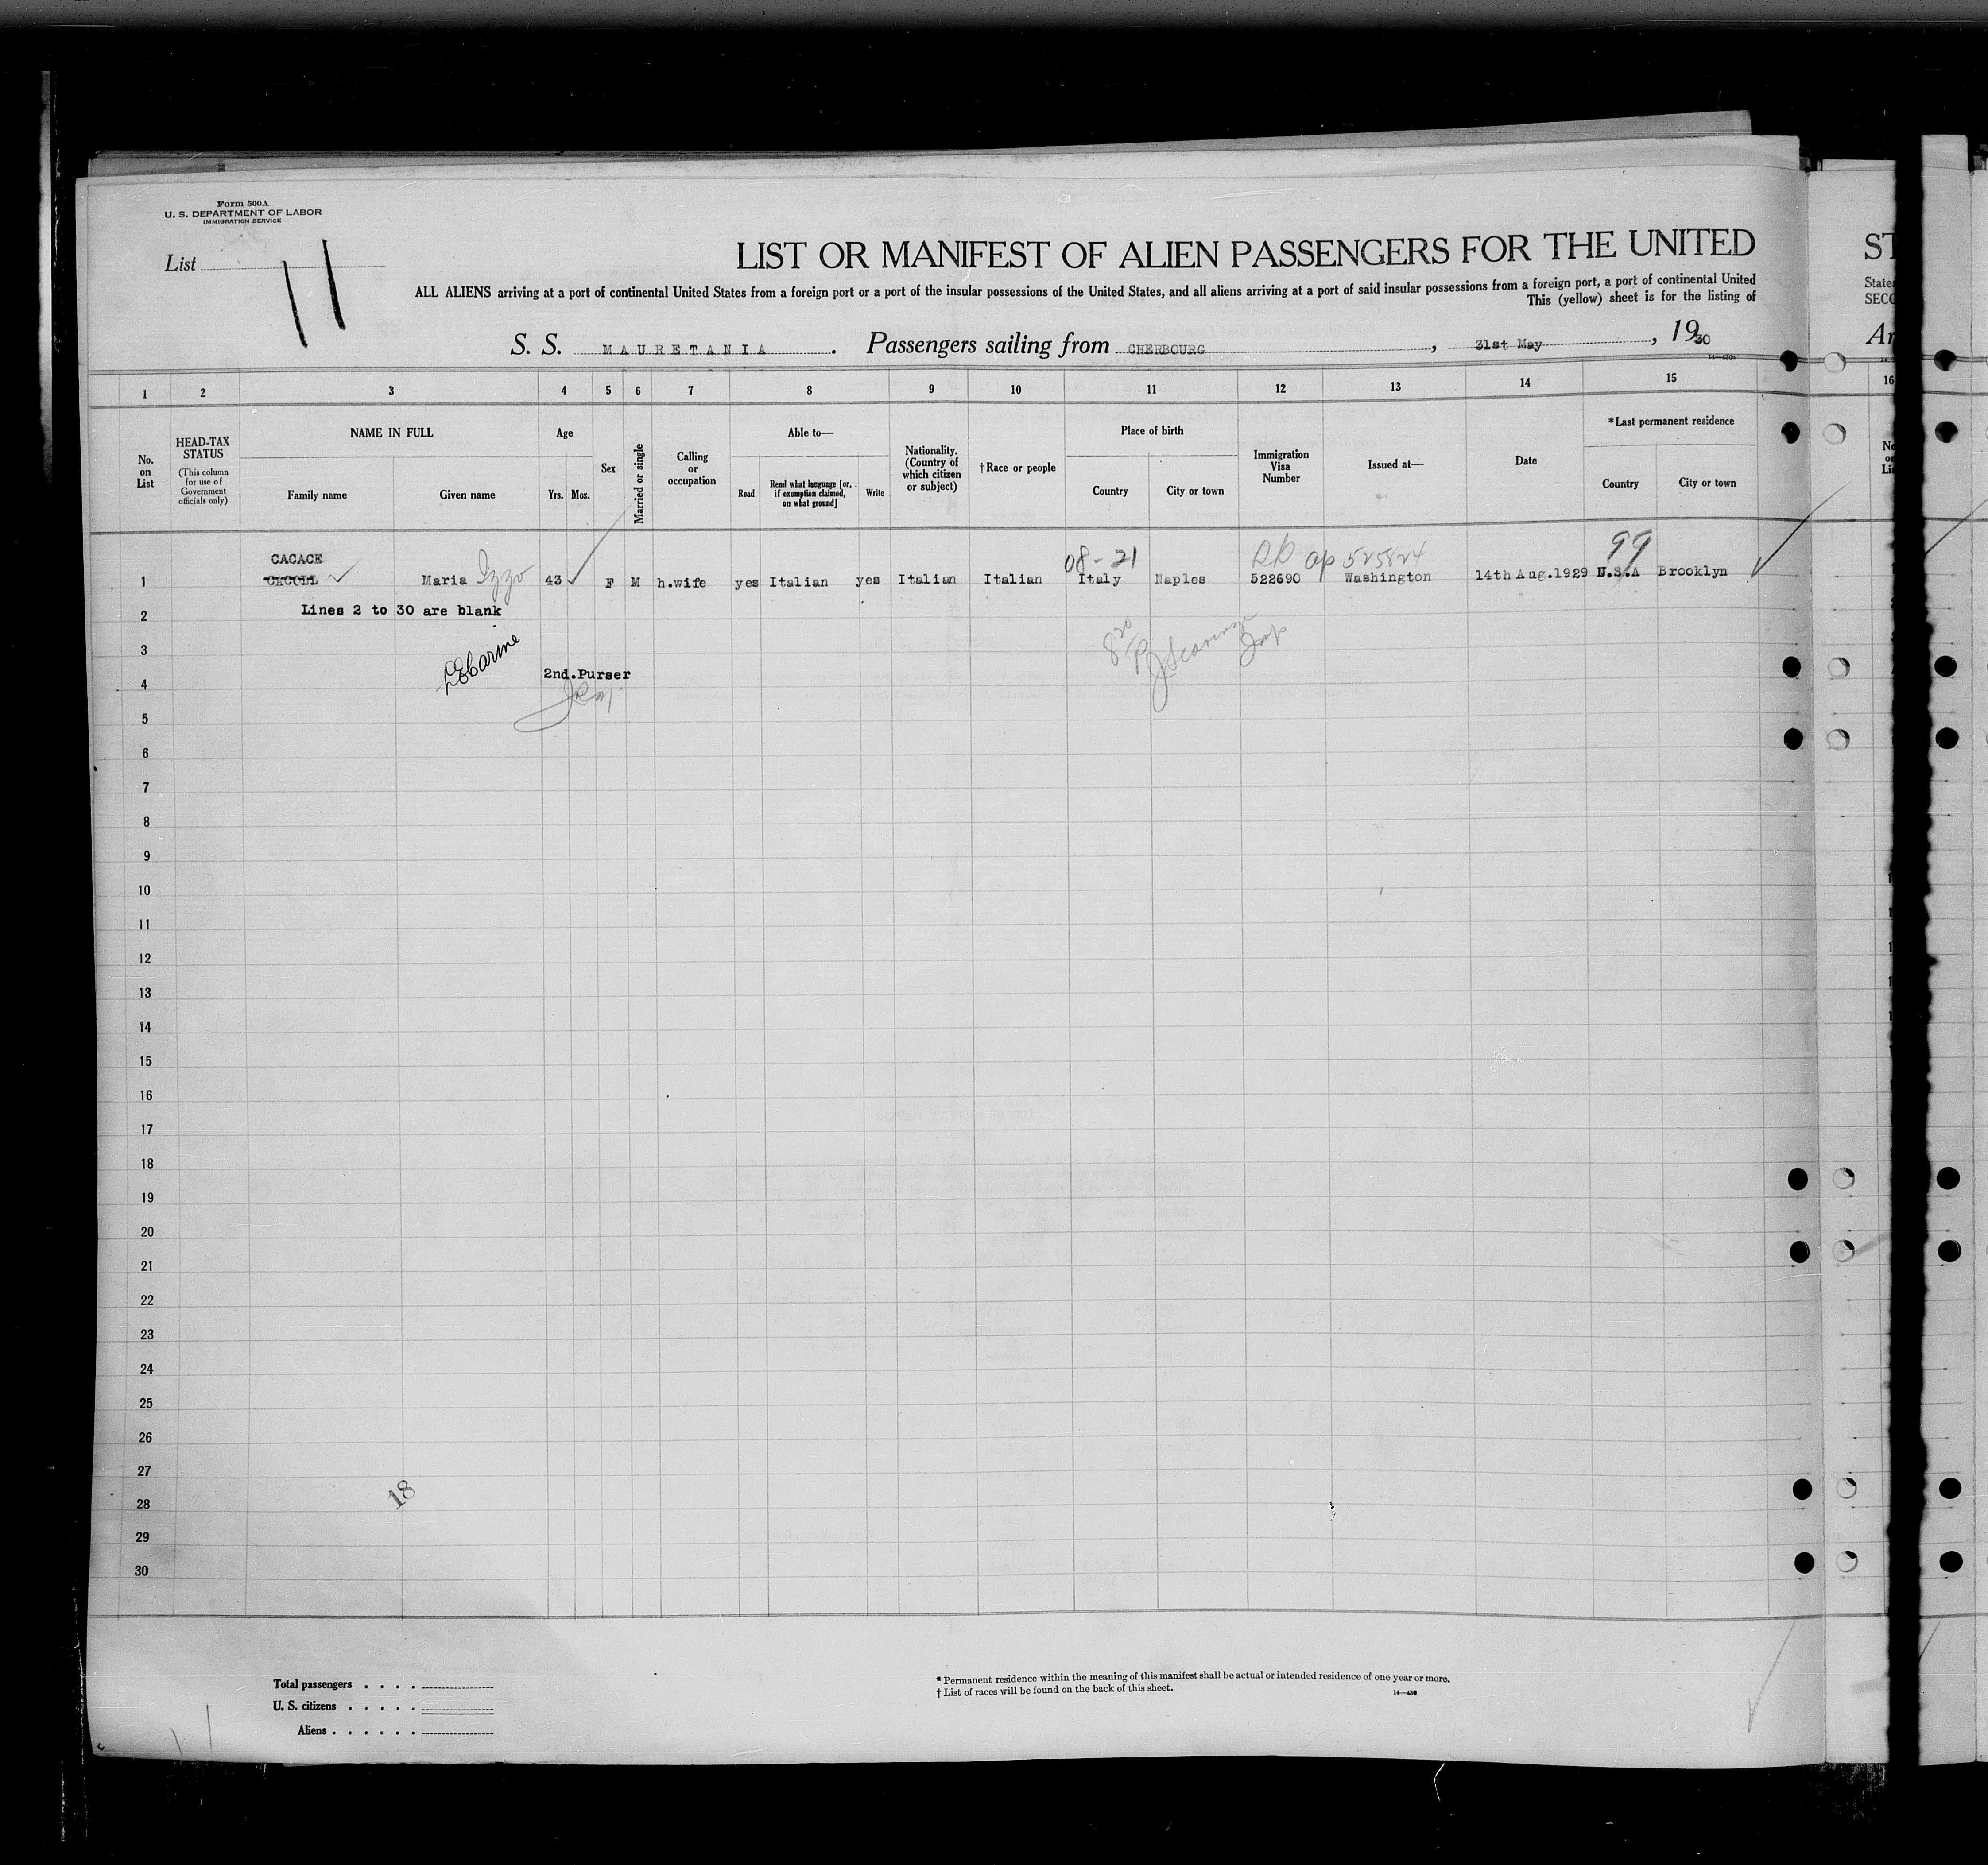 Form 500A
U. S. DEPARTMENT OF LABOR
IMMIGRATION SERVICE
List 11
LIST OR MANIFEST OF ALIEN PASSENGERS FOR THE UNITED
ST
ALL ALIENS arriving at a port of continental United States from a foreign port or a port of the insular possessions of the United States, and all aliens arriving at a port of said insular possessions from a foreign port, a port of continental United
This (yellow) sheet is for the listing of
S. S. MAURETANIA . Passengers sailing from CHERBOURG , 31st May , 1930
1 2 3 4 5 6 7 8 9 10 11 12 13 14 15 16
No. on List
HEAD-TAX STATUS
(This column for use of Government officials only)
NAME IN FULL
Family name Given name
Age
Yrs. Mos.
Sex
Married or single
Calling or occupation
Able to—
Read
Read what language [or, if exemption claimed, on what ground]
Write
Nationality. (Country of which citizen or subject)
†Race or people
Place of birth
Country City or town
Immigration Visa Number
Issued at—
Date
*Last permanent residence
Country City or town
CACACE 08-21 525824 99
1 Maria Izzo 43 F M h.wife yes Italian yes Italian Italian Italy Naples 522690 Washington 14th Aug.1929 U.S.A Brooklyn
2 Lines 2 to 30 are blank
3
4 2nd.Purser
5
6
7
8
9
10
11
12
13
14
15
16
17
18
19
20
21
22
23
24
25
26
27
28 18
29
30
Total passengers . . . .
U. S. citizens . . . . .
Aliens . . . . . .
* Permanent residence within the meaning of this manifest shall be actual or intended residence of one year or more.
† List of races will be found on the back of this sheet.